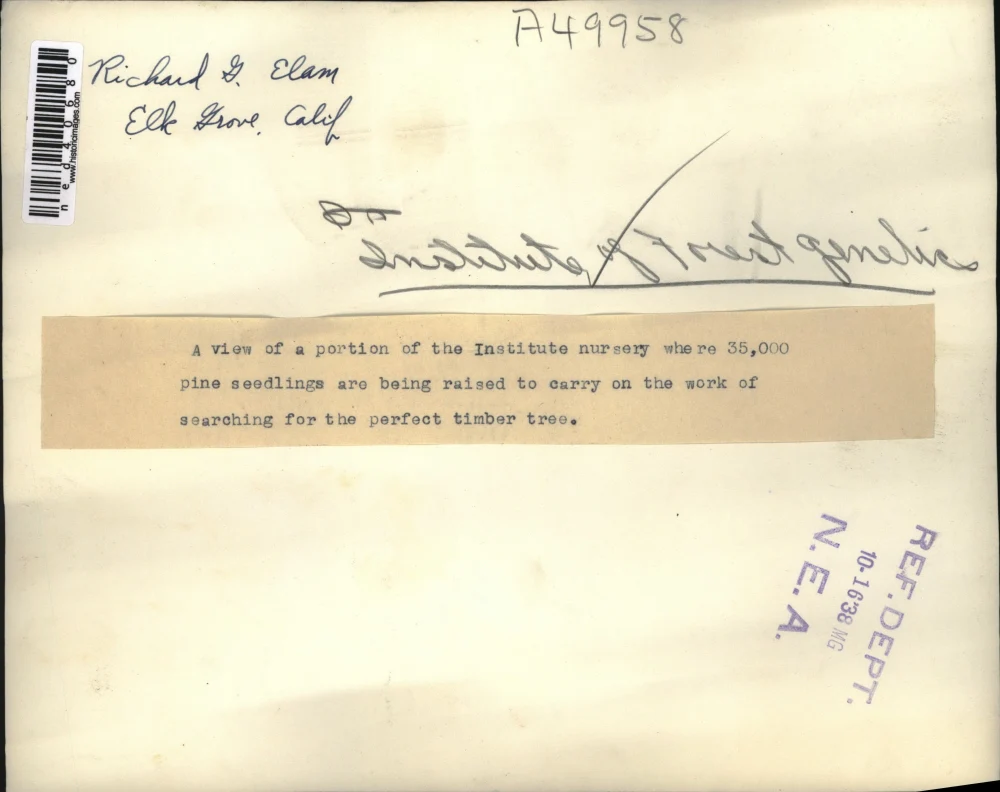 A49958
Richard G. Elam
Elk Grove, Calif
ned40680
www.historicimages.com
Institute of Forest genetics
A view of a portion of the Institute nursery where 35,000
pine seedlings are being raised to carry on the work of
searching for the perfect timber tree.
REF. DEPT.
10-16'38 MG
N.E.A.